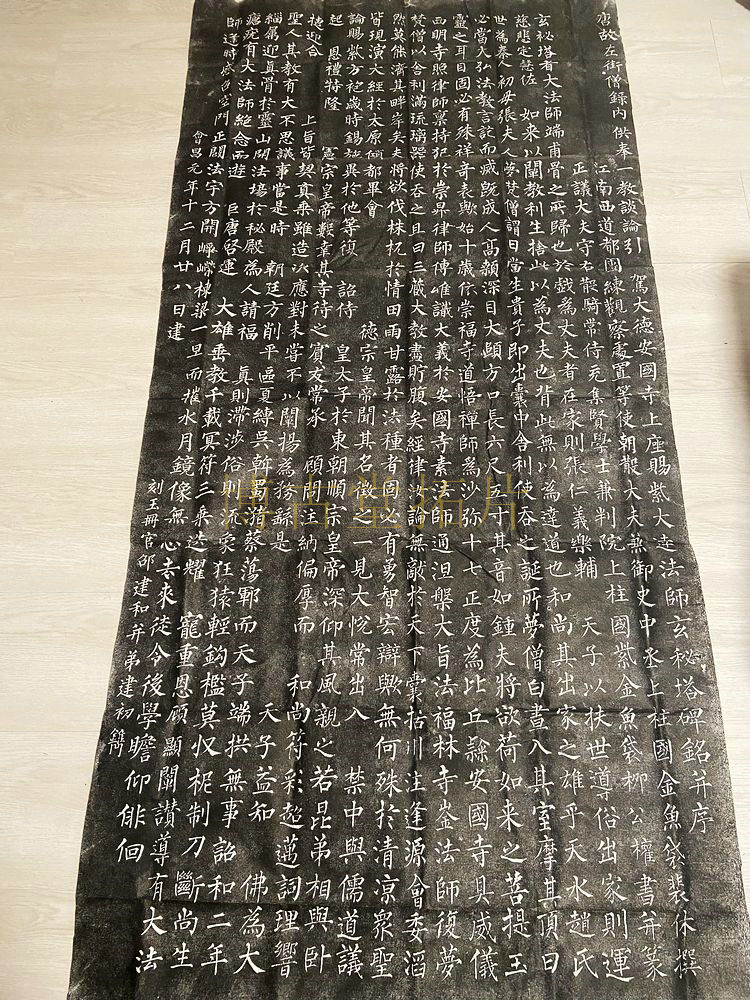 唐故左街僧録内供奉三教談論引駕大德安國寺上座賜紫大達法師玄秘塔碑銘并序
江南西道都團練觀察處置等使朝散大夫兼御史中丞上柱國金魚袋裴休撰
正議大夫守右散騎常侍充集賢學士兼判院上柱國紫金魚袋柳公權書并篆
玄秘塔者大法師端甫骨之所歸也於戲為丈夫者在家則張仁義樂輔 天子以扶世導俗出家則運
慈悲定慧佐 如来以闡教利生捨此以為丈夫也背此無以為達道也和尚其出家之雄乎天水趙氏
世為秦人初母張夫人夢梵僧謂曰當生貴子即出囊中舍利使吞之誕所夢僧白晝入其室摩其頂曰
必當大弘法教言訖而滅既成人高顙深目大頤方口長六尺五寸其音如鍾夫將欲荷如来之菩提王
靈之耳目固必有殊祥奇表歟始十歲依崇福寺道悟禪師為沙弥十七正度為比丘隸安國寺具威儀
西明寺照律師禀持犯於崇昇律師傳唯識大義於安國寺素法師通涅槃大旨法福林寺崟法師復夢
梵僧以舍利滿琉璃器使吞之且曰三藏大教盡貯腹矣經律論無敵於天下囊括川注逢源會委滔
然莫能濟其畔岸矣夫將欲伐株杌於情田雨甘露於法種者固必有勇智宏辯歟無何殊於清凉衆聖
皆現演大經於太原傾都畢會 德宗皇帝聞其名徵之一見大悅常出入 禁中與儒道議
論賜紫方袍歲時錫施異於他等復 詔侍 皇太子於東朝順宗皇帝深仰其風親之若昆弟相與卧
起 恩禮特隆 憲宗皇帝數幸其寺待之賓友常承 顧問注納偏厚而 和尚符彩超邁詞理響
捷迎合 上旨皆契真乗雖造次應對未嘗不以闡揚為務繇是 天子益知 佛為大
聖人其教有大不思議事當是時 朝廷方削平區夏縛吳斡蜀潴蔡蕩鄆而天子端拱無事詔和二年
緇属迎真骨於靈山開法場於秘殿為人請福 真則滯涉俗則流象狂猿輕鈎檻莫収柅制刀斷尚生
瘡疣有大法師絶念而遊 巨唐啓運 大雄垂教千載冥符三乗迭耀 寵重恩顧 顯闡讃導有大法
師逢時感召空門正闢法宇方開崢嶸棟梁一旦而摧水月鏡像無心去来徒令後學瞻仰俳佪
會昌元年十二月廿八日建
刻玉冊官邵建和并弟建初鐫
博古堂拓片